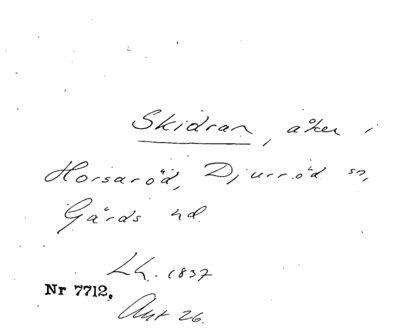 Skidran, åker i
Horsaröd, Djurröd sn,
Gärds hd.
Lh. 1837
Nr 7712.
Akt 26.